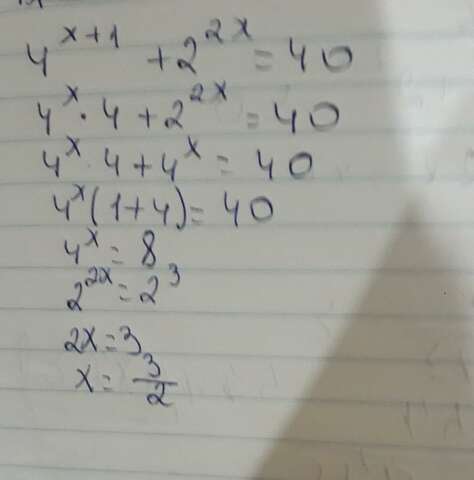 4^{x+1} + 2^{2x} = 40
4^x · 4 + 2^{2x} = 40
4^x · 4 + 4^x = 40
4^x (1+4) = 40
4^x = 8
2^{2x} = 2^3
2x = 3
x = 3/2